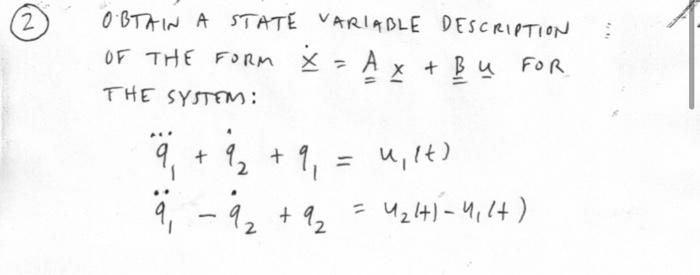 ② OBTAIN A STATE VARIABLE DESCRIPTION
OF THE FORM ẋ = A x + B u FOR
THE SYSTEM:
q⃛₁ + q̇₂ + q₁ = u₁(t)
q̈₁ - q̇₂ + q₂ = u₂(t) - u₁(t)